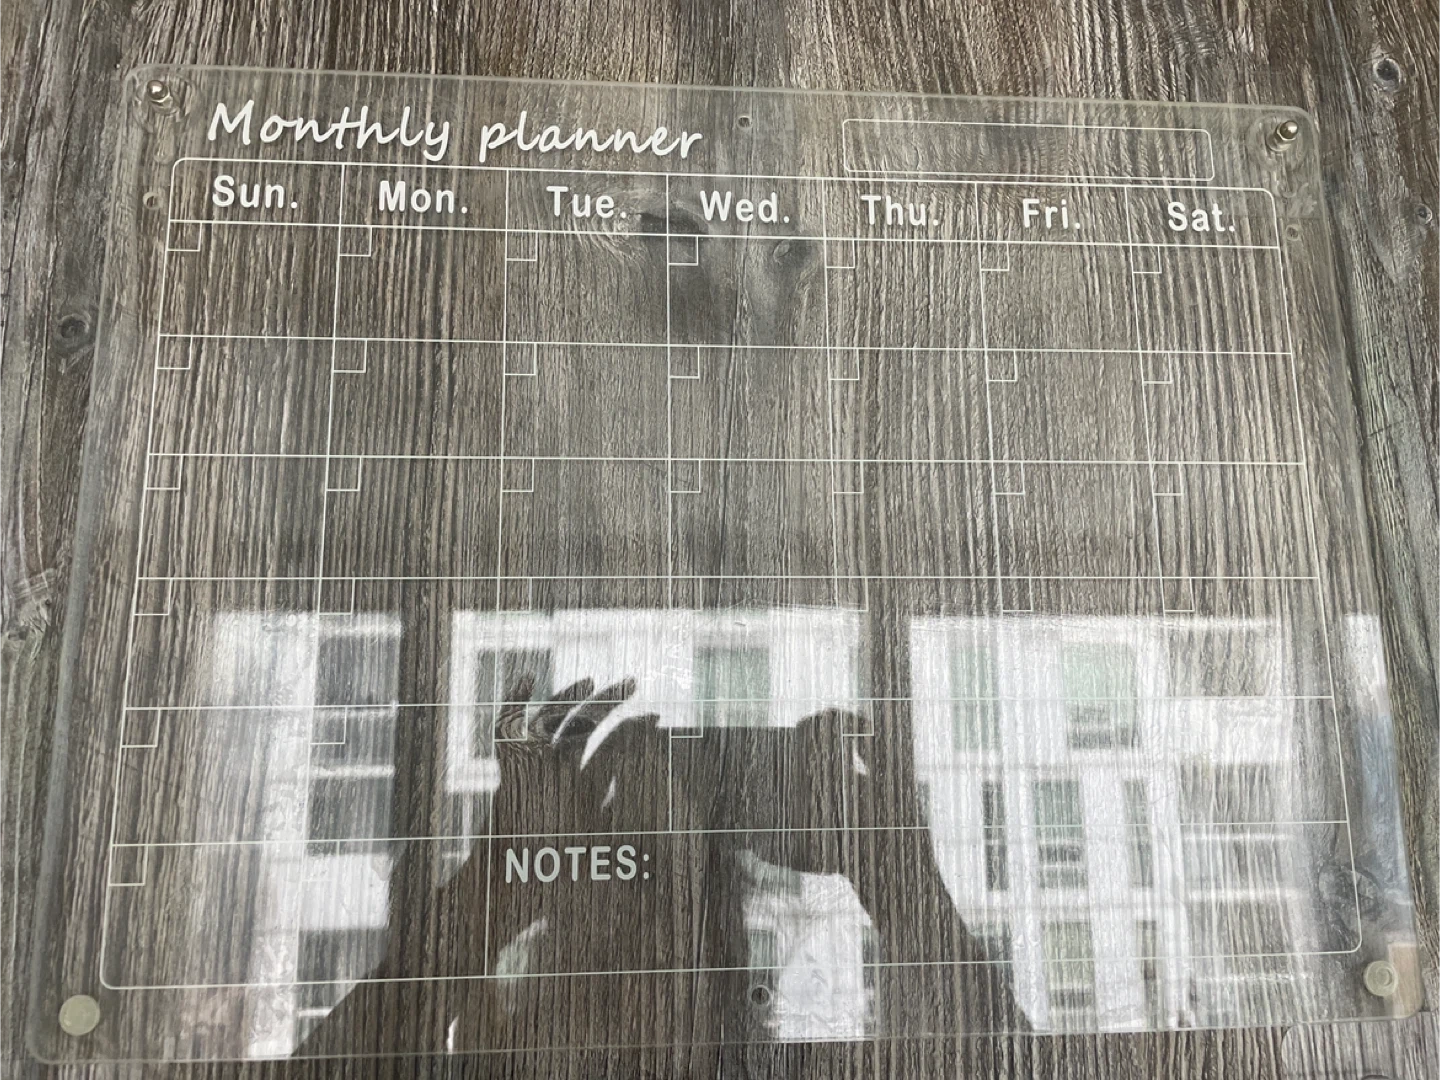 Monthly planner
Sun. Mon. Tue. Wed. Thu. Fri. Sat.
NOTES: